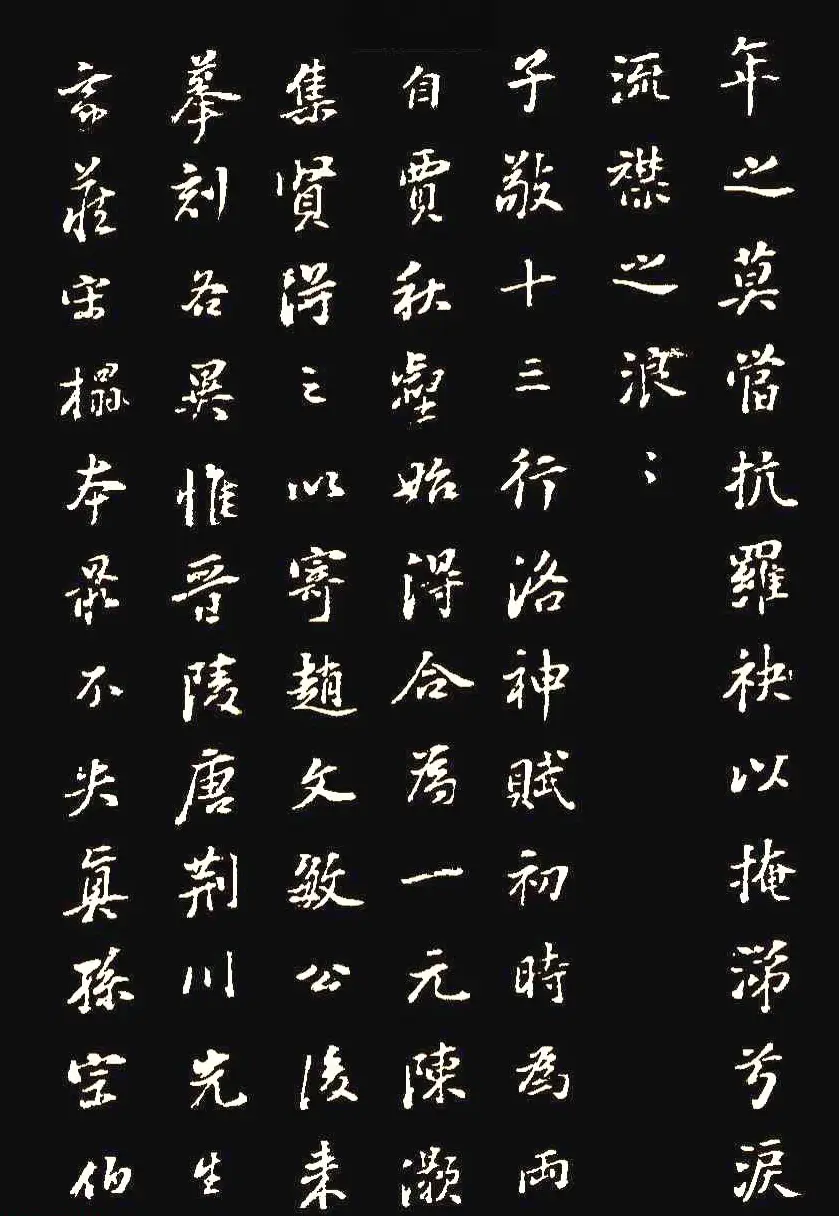 年之莫當抗羅袂以掩涕兮淚
流襟之浪〻
子敬十三行洛神賦初時為兩
自賈秋壑始得合為一元陳灝
集賢得之以寄趙文敏公後來
摹刻各異惟晉陵唐荊川先生
藏宋榻本最不失真孫宗伯